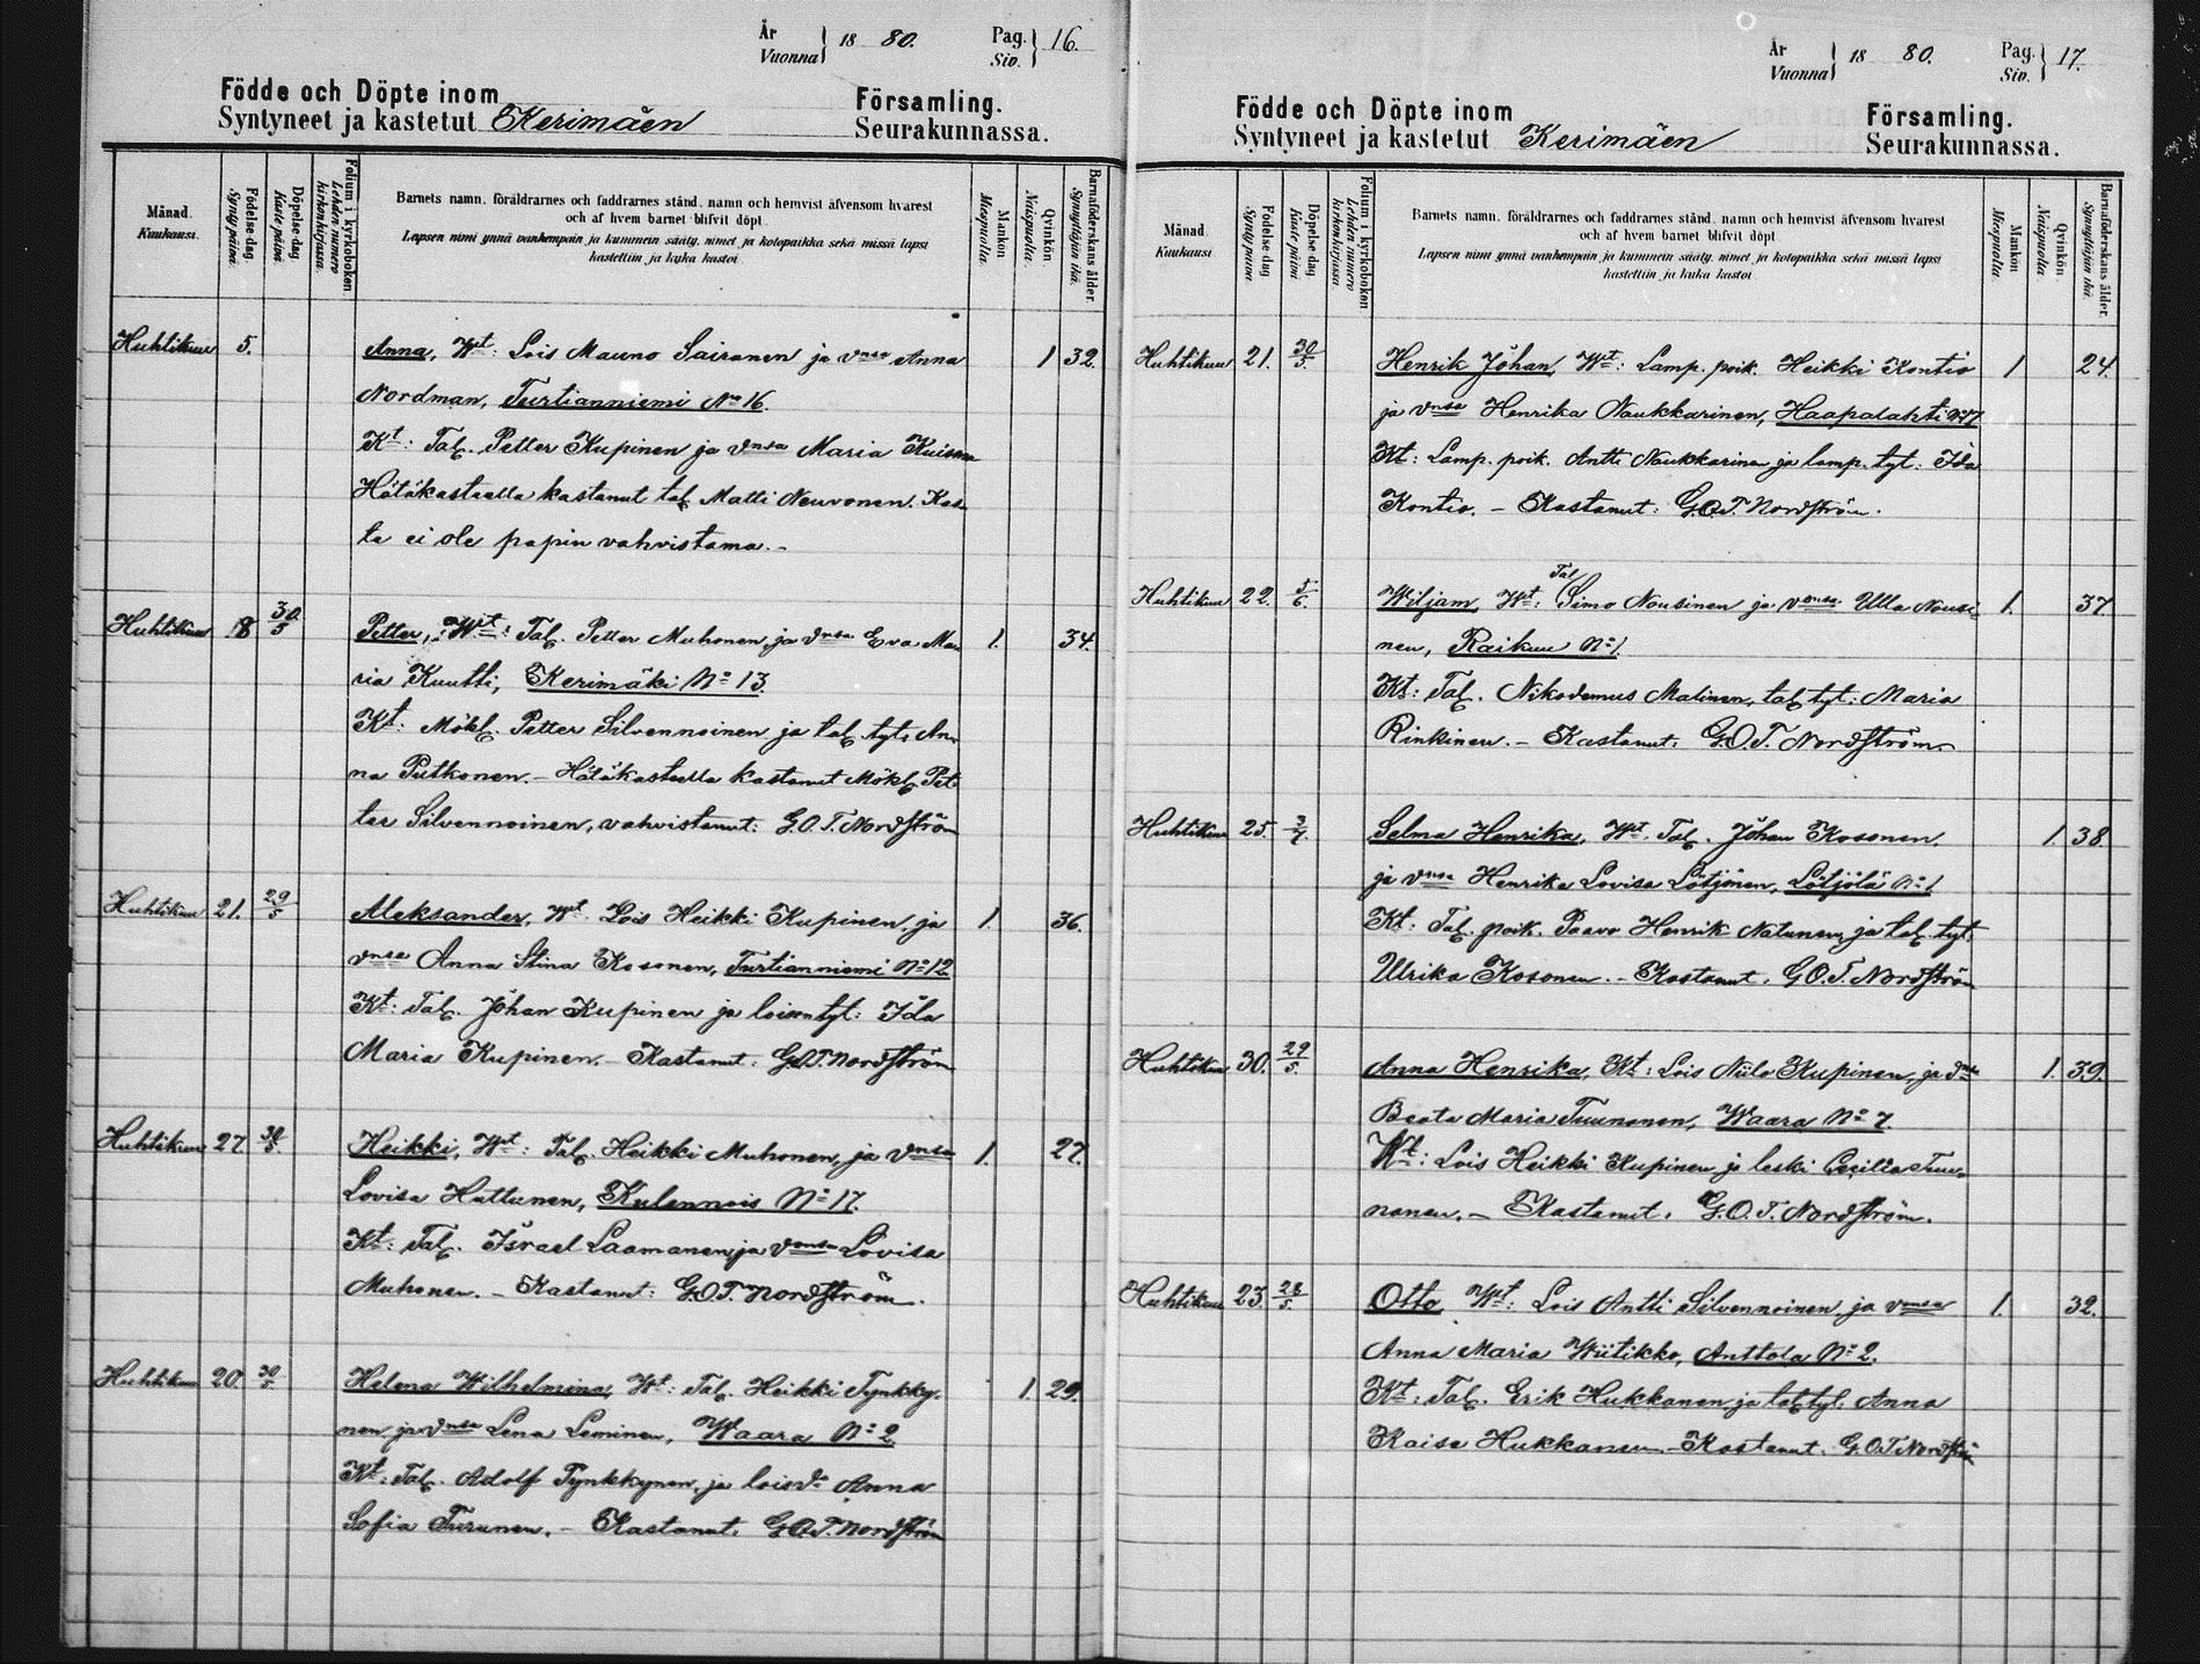 År
Vuonna } 18 80.
Pag.
Siv. } 16.
Födde och Döpte inom
Syntyneet ja kastetut Kerimäen
Församling.
Seurakunnassa.
Månad.
Kuukausi.
Födelse-dag.
Synty päivä.
Döpelse-dag.
Kaste päivä.
Folium i kyrkoboken.
Lehden numero
kirkonkirjassa.
Barnets namn, föräldrarnes och faddrarnes stånd, namn och hemvist äfvensom hvarest
och af hvem barnet blifvit döpt.
Lapsen nimi ynnä vanhempain ja kummein sääty, nimet ja kotopaikka sekä missä lapsi
kastettiin ja kuka kastoi.
Mankön
Miespuolia.
Qvinkön.
Naispuolia.
Barnaföderskans ålder.
Synnyttäjän ikä.
Huhtikuu 5. Anna, Wt: Lois Mauno Sairanen ja vnsa Anna 1 32.
Nordman, Turtianniemi No 16.
Kt: Tal. Petter Kupinen ja vnsa Maria Kuisma
Hätäkasteella kastanut tal. Matti Neuvonen. Kas-
te ei ole papin vahvistama.-
Huhtikuu 8 30/5 Petter, Wt: Tal. Petter Muhonen ja vnsa Eva Ma- 1. 34.
ria Kuutti, Kerimäki No 13.
Kt: Mökl. Petter Silvennoinen ja tal. tyt. An-
na Putkonen. - Hätäkasteella kastanut Mökl. Pet-
ter Silvennoinen, vahvistanut: G.O.T. Nordström
Huhtikuu 21. 29/5 Aleksander, Wt. Lois Heikki Kupinen, ja 1. 36.
vnsa Anna Stina Kosonen, Turtianniemi No 12
Kt: Tal. Johan Kupinen ja loisen tyt: Ida
Maria Kupinen. - Kastanut: G.O.T. Nordström
Huhtikuu 27. 30/5. Heikki, Wt: Tal. Heikki Muhonen, ja vnsa 1. 27.
Lovisa Huttunen, Kulennois No 17.
Kt: Tal. Israel Laamanen, ja vonsa Lovisa
Muhonen. - Kastanut: G.O.T. Nordström.
Huhtikuu 20. 30/5. Helena Wilhelmina, Wt: Tal. Heikki Tynkky- 1. 29.
nen ja vnsa Lena Leminen, Waara No 2
Kt: Tal. Adolf Tynkkynen, ja Anna
Sofia Turunen. - Kastanut. G.O.T. Nordström
År
Vuonna } 18 80.
Pag.
Siv. } 17.
Födde och Döpte inom
Syntyneet ja kastetut Kerimäen
Församling.
Seurakunnassa.
Månad.
Kuukausi
Födelse dag
Synty päivä
Döpelse dag
Kaste päivä
Folium i kyrkoboken
Lehden numero
kirkonkirjassa
Barnets namn, föräldrarnes och faddrarnes stånd, namn och hemvist äfvensom hvarest
och af hvem barnet blifvit döpt.
Lapsen nimi ynnä vanhempain ja kummein sääty, nimet ja kotopaikka sekä missä lapsi
kastettiin ja kuka kastoi
Mankön
Miespuolia.
Qvinkön.
Naispuolia.
Barnaföderskans ålder.
Synnyttäjän ikä.
Huhtikuu 21. 30/5. Henrik Johan, Wt: Lamp. poik. Heikki Kontio 1 24.
ja vnsa Henrika Naukkarinen, Haapalahti No 7
Kt: Lamp. poik. Antti Naukkarinen ja lamp. tyt: Ida
Kontio. - Kastanut: G.O.T. Nordström.
Huhtikuu 22. 5/6. Wiljam, Wt: Tal. Simo Nousinen ja vonsa Ulla Nousi- 1. 37.
nen, Raikuu No 1.
Kt: Tal. Nikodemus Malinen, tal. tyt: Maria
Rinkinen. - Kastanut: G.O.T. Nordström.
Huhtikuu 25. 3/7. Selma Henrika, Wt. Tal. Johan Kosonen. 1. 38.
ja vnsa Henrika Lovisa Lötjönen, Lötjölä No 1
Kt: Tal. poik. Paavo Henrik Natunen, ja tal. tyt.
Ulrika Kosonen. - Kastanut. G.O.T. Nordström
Huhtikuu 30. 29/5. Anna Henrika, Kt: Lois Niilo Kupinen, ja vnsa 1. 39.
Beata Maria Tuunanen, Waara No 7.
Wt: Lois Heikki Kupinen ja leski Cecilia Tuu-
nanen. - Kastanut. G.O.T. Nordström.
Huhtikuu 23. 28/5. Otto Wt: Lois Antti Silvennoinen ja vonsa 1. 32.
Anna Maria Wiitikko, Anttola No 2.
Kt: Tal. Erik Hukkanen ja tal. tyt. Anna
Kaisa Hukkanen. - Kastanut. G.O.T. Nordström